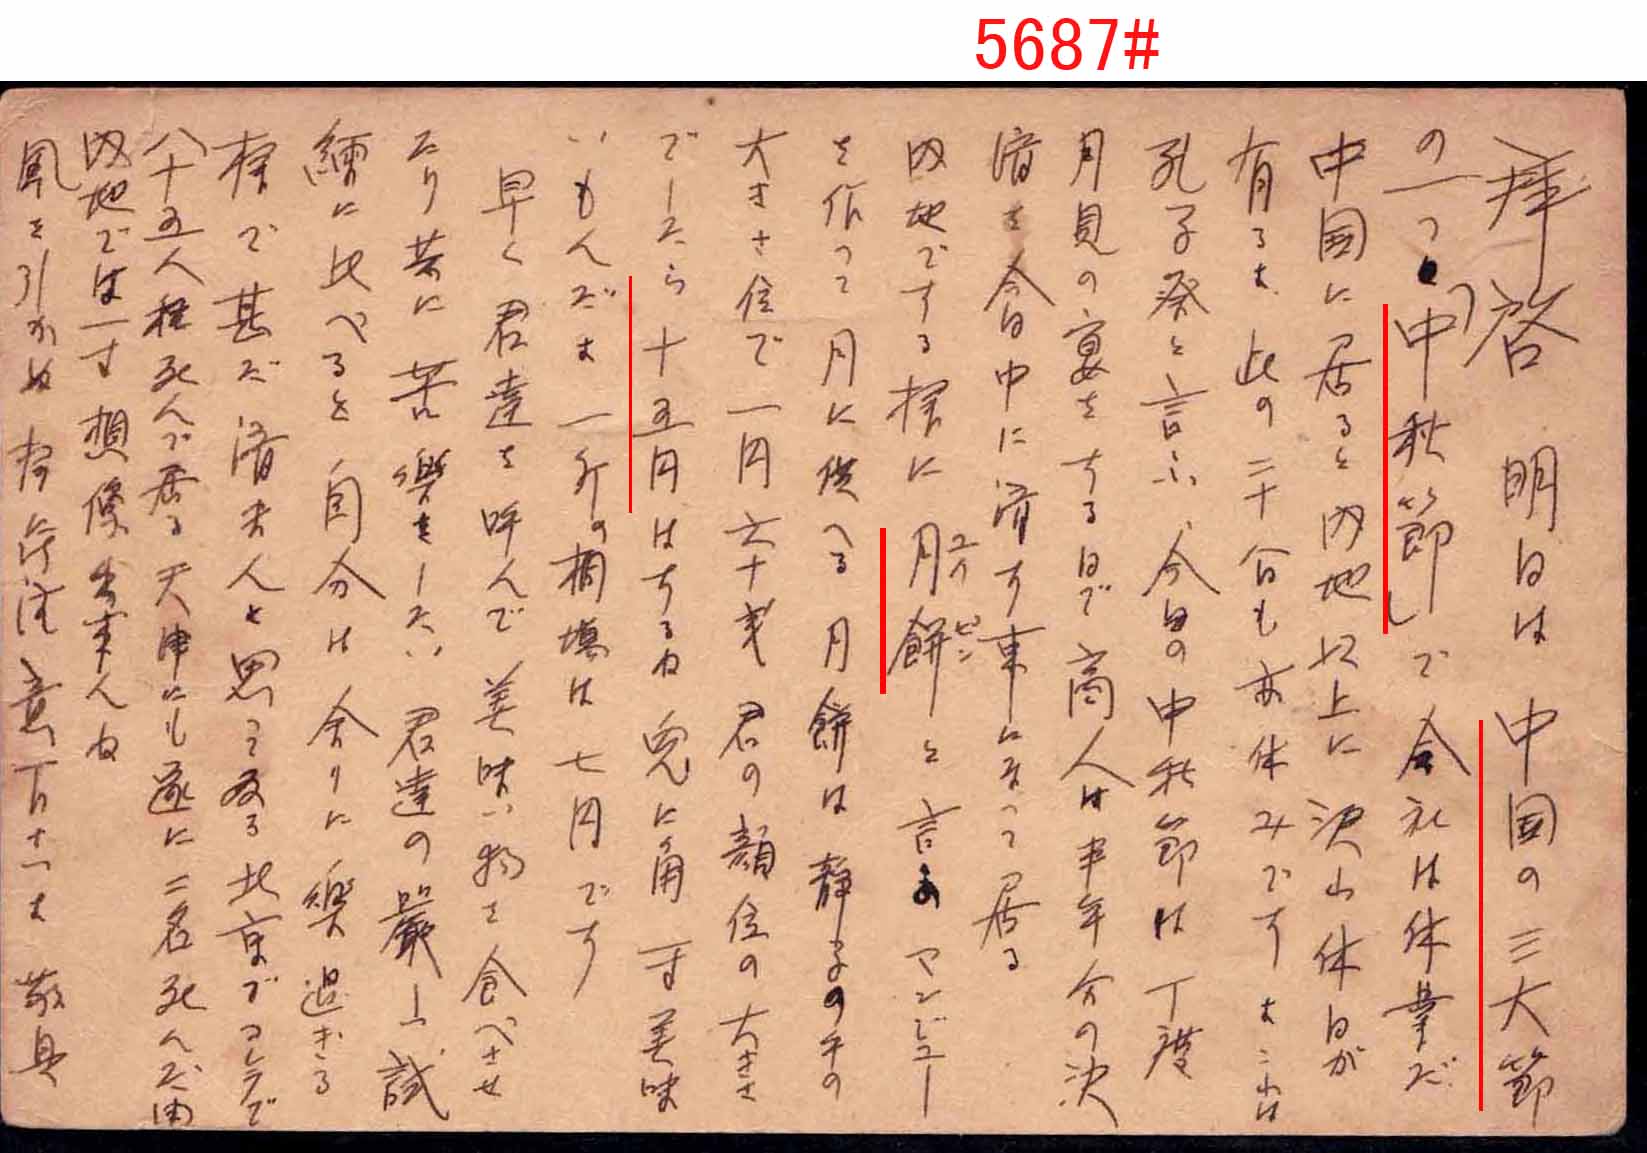 5687#
拝啓 明日は 中国の三大節
の一つ「中秋節」で 会社は休業だ
中国に居ると 内地以上に 沢山休日が
有るよ 此の二十八日も亦休みです
孔子祭と言ふ、今日の中秋節は 丁度
月見の宴をする日で 商人は半年分の決
済を今日中に済す事になって居る
内地でする様に 月餅と言ふ マンジュー
ユウ ピン
を作って 月に供へる 月餅は 静子の手の
大きさ位で 一円六十銭 君の顔位の大きさ
でしたら 十五円はするね 兎に角 一寸美味
いもんだよ 一斤の 七円です
早く君達を呼んで 美味い物を食べさせ
たり 苦楽をしたい 君達の厳しい試
練に比べると 自分は余りに楽過ぎる
様で甚だ済まんと思って居る 北京でコレラで
八十五人程死んで居る 天津にも遂に二名死んだ由
内地では一寸想像出来んね
風を引かぬ様に注意 敬具